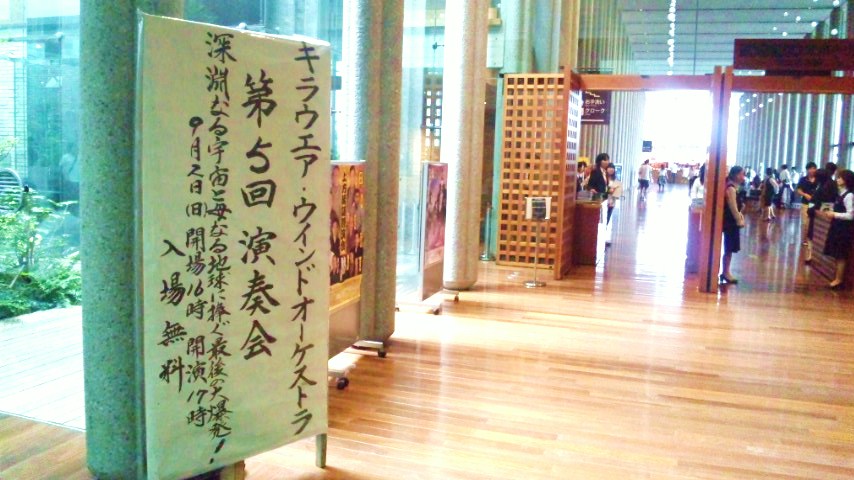 キラウエア・ウインドオーケストラ
第5回演奏会
深淵なる宇宙と母なる地球に捧ぐ最後の大爆発!
9月2日(日)開場16時 開演17時
入場無料
お手洗い
クローク